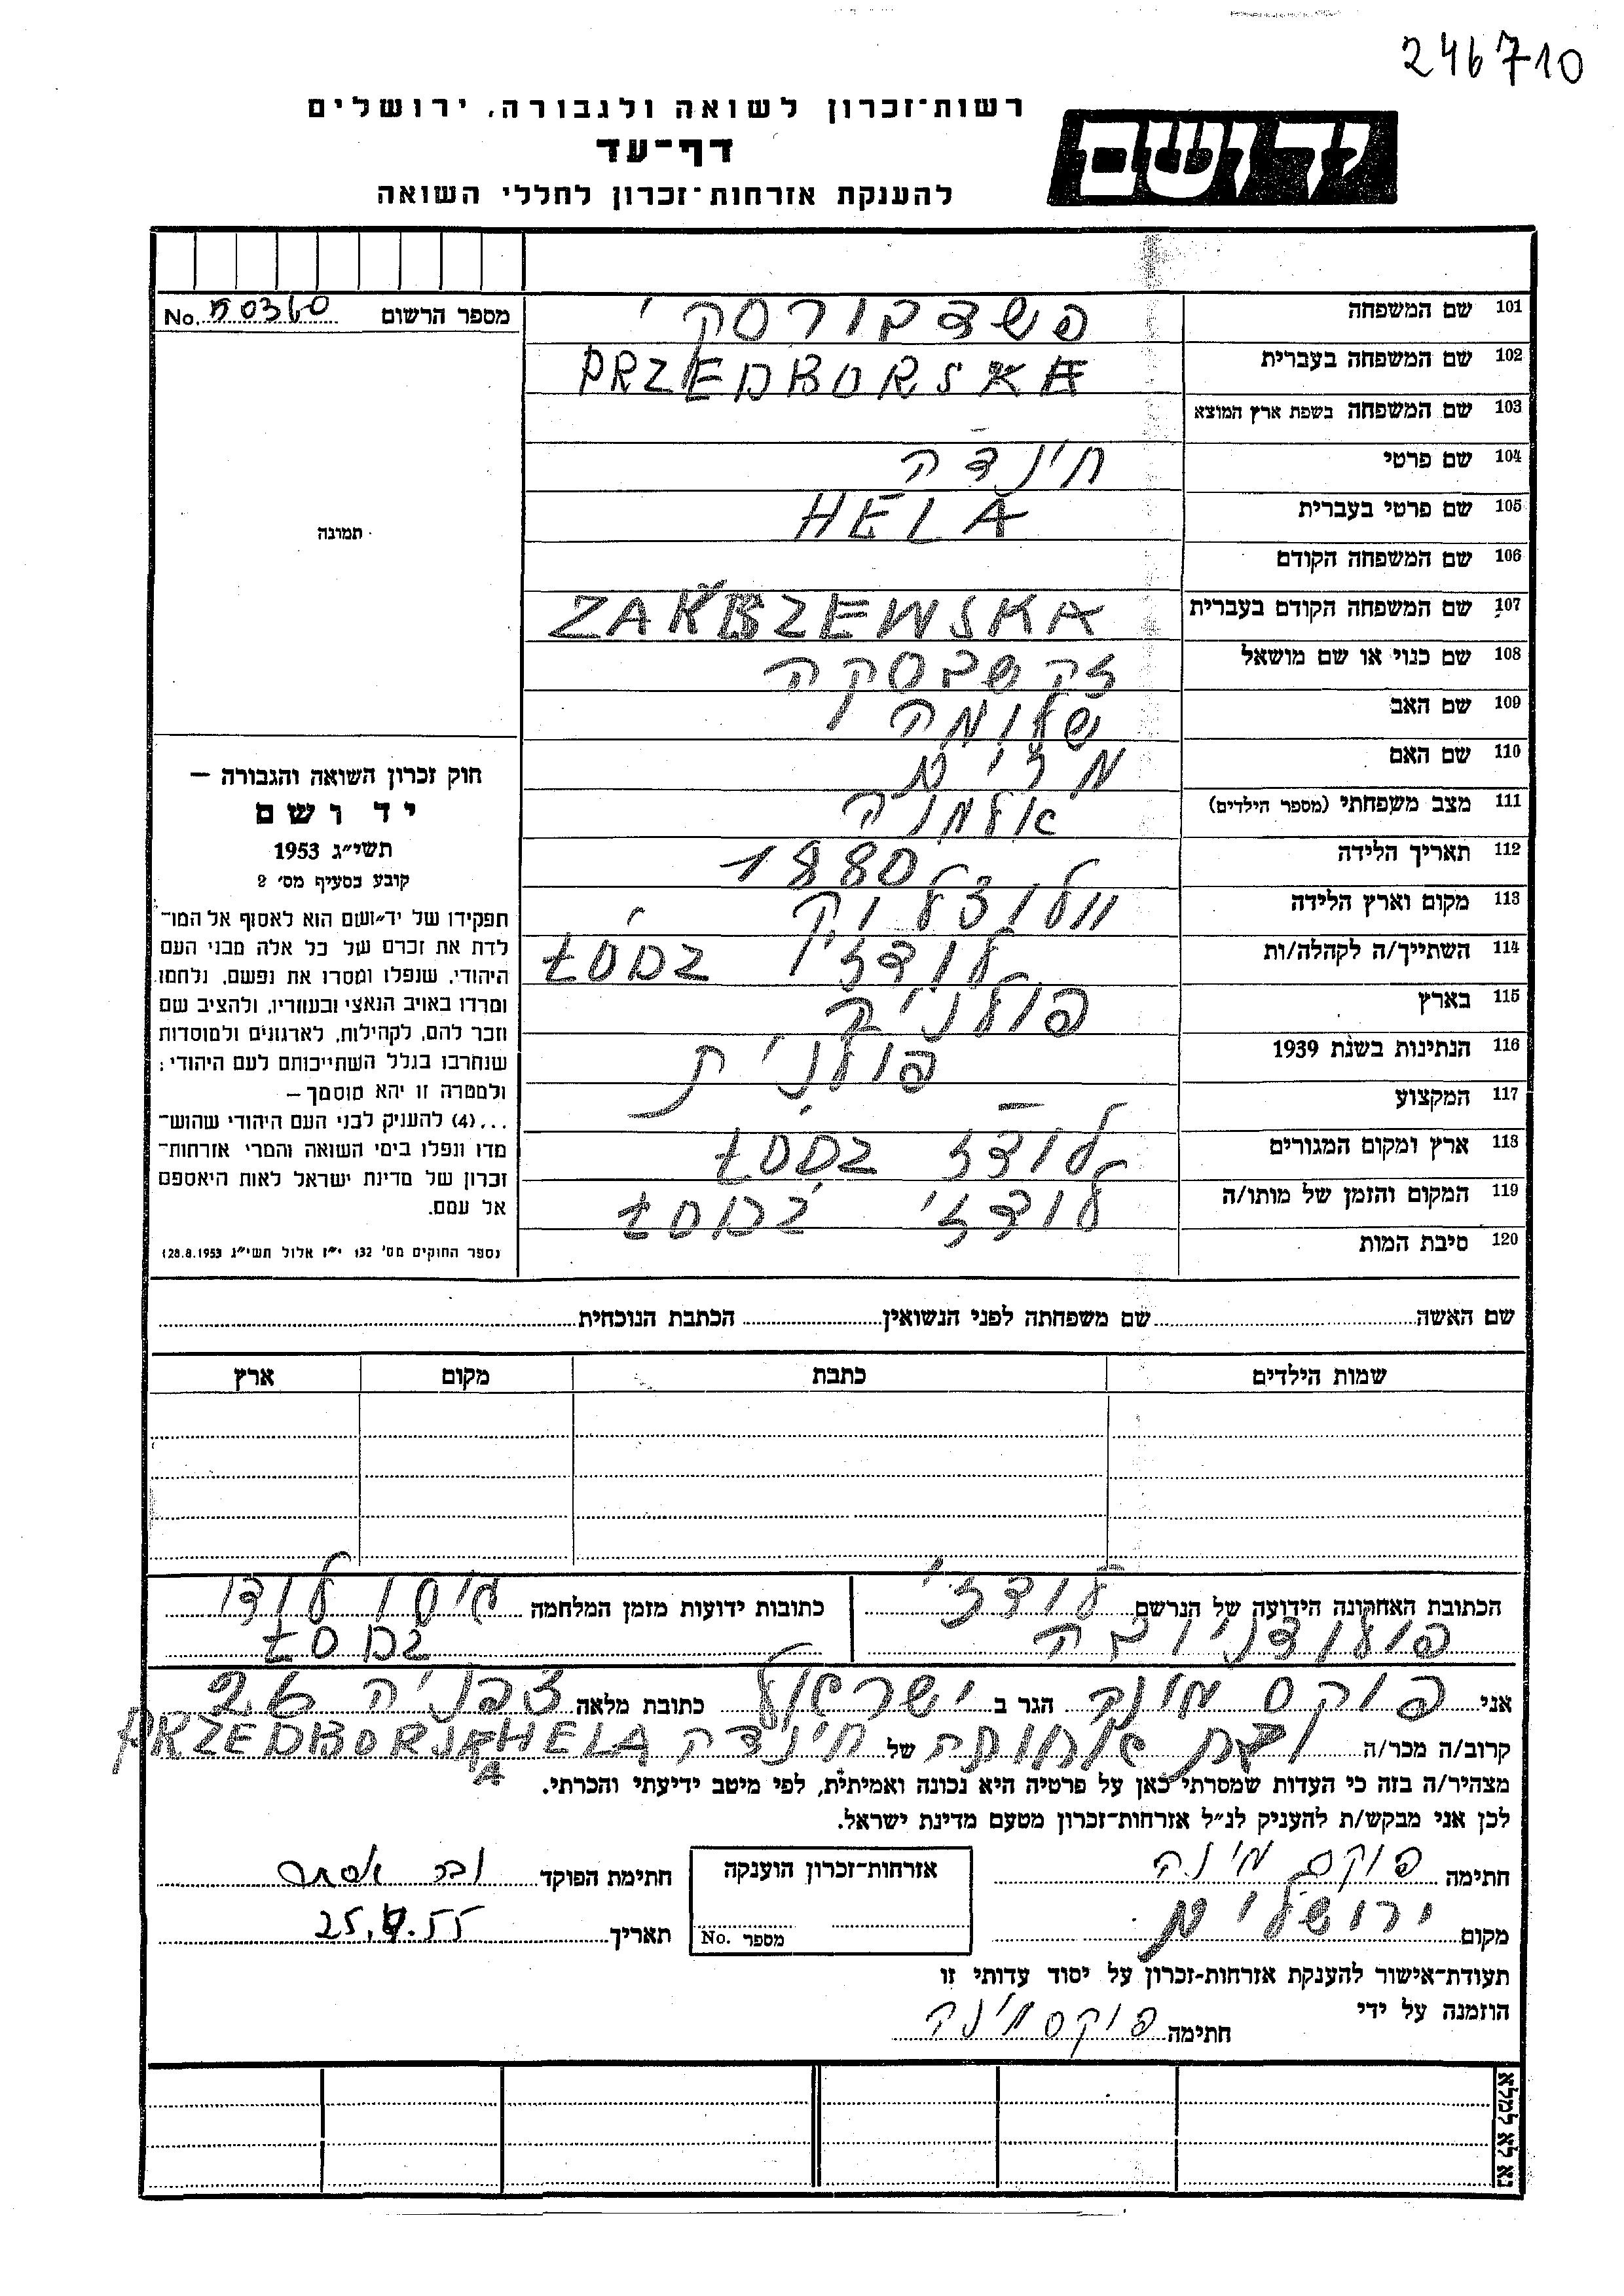 246710
רשות־זכרון לשואה ולגבורה, ירושלים
יד ושם
דף־עד
להענקת אזרחות־זכרון לחללי השואה
מספר הרשום No. 50360
תמונה
101 שם המשפחה פשדבורסקי
102 שם המשפחה בעברית PRZEDBORSKA
103 שם המשפחה בשפת ארץ המוצא
104 שם פרטי חינדה
105 שם פרטי בעברית HELA
106 שם המשפחה הקודם
107 שם המשפחה הקודם בעברית ZAKRZEWSKA
108 שם כנוי או שם מושאל זקשבסקה
109 שם האב שלומה
110 שם האם מרים
111 מצב משפחתי (מספר הילדים) אלמנה
112 תאריך הלידה 1880
113 מקום וארץ הלידה וולוצלוק
114 השתייך/ה לקהלה/ות לודז' ŁÓDZ
115 בארץ פולניה
116 הנתינות בשנת 1939 פולנית
117 המקצוע —
118 ארץ ומקום המגורים לודז ŁÓDZ
119 המקום והזמן של מותו/ה לודז' ŁÓDZ
120 סיבת המות
חוק זכרון השואה והגבורה —
יד ושם
תשי״ג 1953
קובע בסעיף מס׳ 2
תפקידו של יד־ושם הוא לאסוף אל המו־
לדת את זכרם של כל אלה מבני העם
היהודי, שנפלו ומסרו את נפשם, נלחמו
ומרדו באויב הנאצי ובעוזריו, ולהציב שם
וזכר להם, לקהילות, לארגונים ולמוסדות
שנחרבו בגלל השתייכותם לעם היהודי;
ולמטרה זו יהא מוסמך —
...(4) להעניק לבני העם היהודי שהוש־
מדו ונפלו בימי השואה והמרי אזרחות־
זכרון של מדינת ישראל לאות היאספם
אל עמם.
(ספר החוקים מס׳ 132 י״ז אלול תשי״ג 28.8.1953)
שם האשה שם משפחתה לפני הנשואין הכתבת הנוכחית
שמות הילדים כתבת מקום ארץ
הכתובת האחרונה הידועה של הנרשם לודז'
פולודניובה
כתובות ידועות מזמן המלחמה גיטו לודז
ŁODZ
אני פוקס מינה הגר ב ישראל כתובת מלאה צפניה 26
קרוב/ה מכר/ה בת אחותה של חינדה HELA PRZEDBORSKA
מצהיר/ה בזה כי העדות שמסרתי כאן על פרטיה היא נכונה ואמיתית, לפי מיטב ידיעתי והכרתי.
לכן אני מבקש/ת להעניק לנ״ל אזרחות־זכרון מטעם מדינת ישראל.
חתימה פוקס מינה
אזרחות־זכרון הוענקה
מספר No.
חתימת הפוקד
מקום ירושלים
תאריך 25.V.55
תעודת־אישור להענקת אזרחות־זכרון על יסוד עדותי זו
הוזמנה על ידי
חתימה פוקס מינה
נא לא למלא